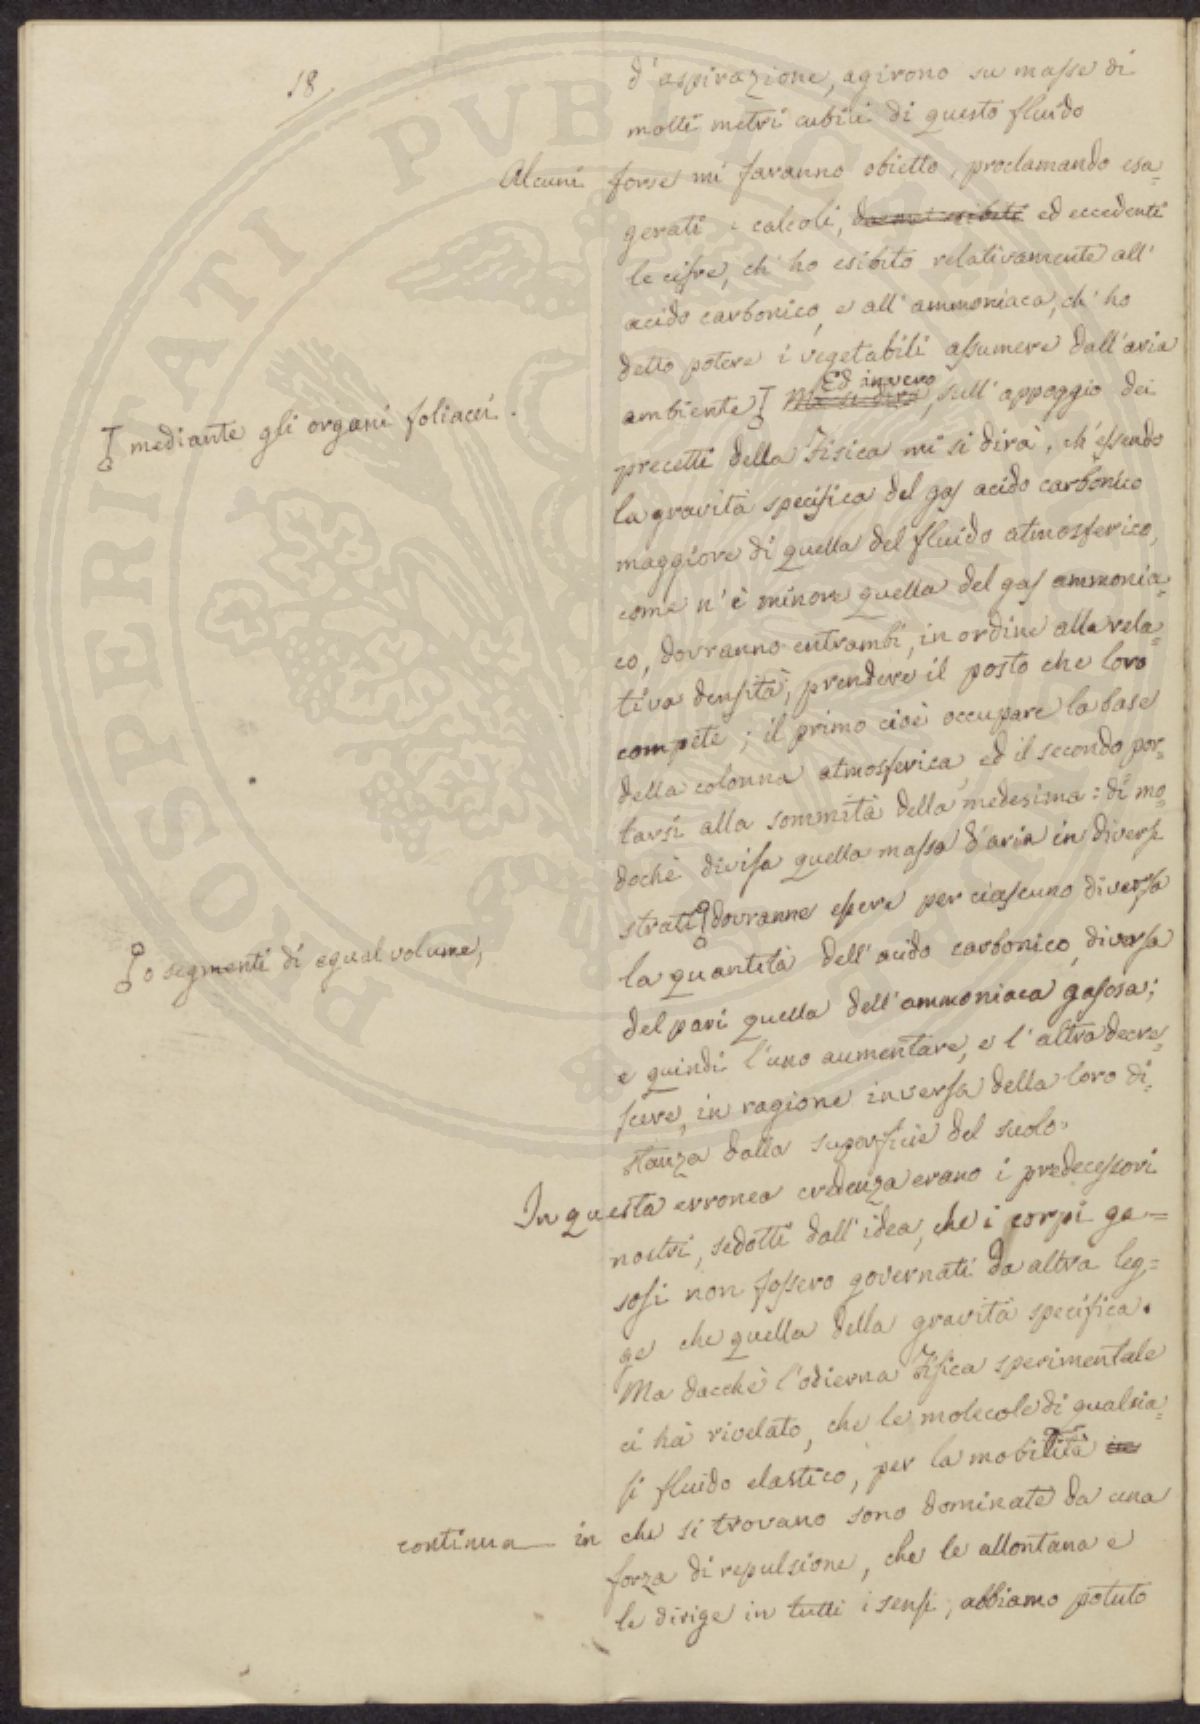 18
d'aspirazione, agirono su masse di
molti metri cubici di questo fluido
Alcuni forse mi faranno obietto, proclamando esa=
gerati i calcoli, ed eccedenti
le cifre, ch'ho esibito relativamente all'
acido carbonico, e all'ammoniaca, ch'ho
detto potere i vegetabili assumere dall'aria
Ed invero
ambiente! Ma si dirà, sull'appoggio dei
mediante gli organi foliacei.
precetti della Fisica mi si dirà, ch'essendo
la gravità specifica del gas acido carbonico
maggiore di quella del fluido atmosferico,
come n'è minore quella del gas ammonia=
co, dovranno entrambi, in ordine alla rela=
tiva densità, prendere il posto che loro
compete; il primo cioè occupare la base
della colonna atmosferica, ed il secondo por=
tarsi alla sommità della medesima: di mo=
dochè divisa quella massa d'aria in diversi
strati dovranne essere per ciascuno diversa
o segmenti di egual volume,
la quantità dell'acido carbonico, diversa
del pari quella dell'ammoniaca gasosa;
e quindi l'uno aumentare, e l'altra decre=
scere, in ragione inversa della loro di=
stanza dalla superficie del suolo.
In questa erronea credenza erano i predecessori
nostri, sedotti dall'idea, che i corpi ga=
sosi non fossero governati da altra leg=
ge che quella della gravità specifica.
Ma dacchè l'odierna Fisica sperimentale
ci hà rivelato, che le molecole di qualsia=
si fluido elastico, per la mobilità in
continua in che si trovano sono dominate da una
forza di repulsione, che le allontana e
le dirige in tutti i sensi, abbiamo potuto